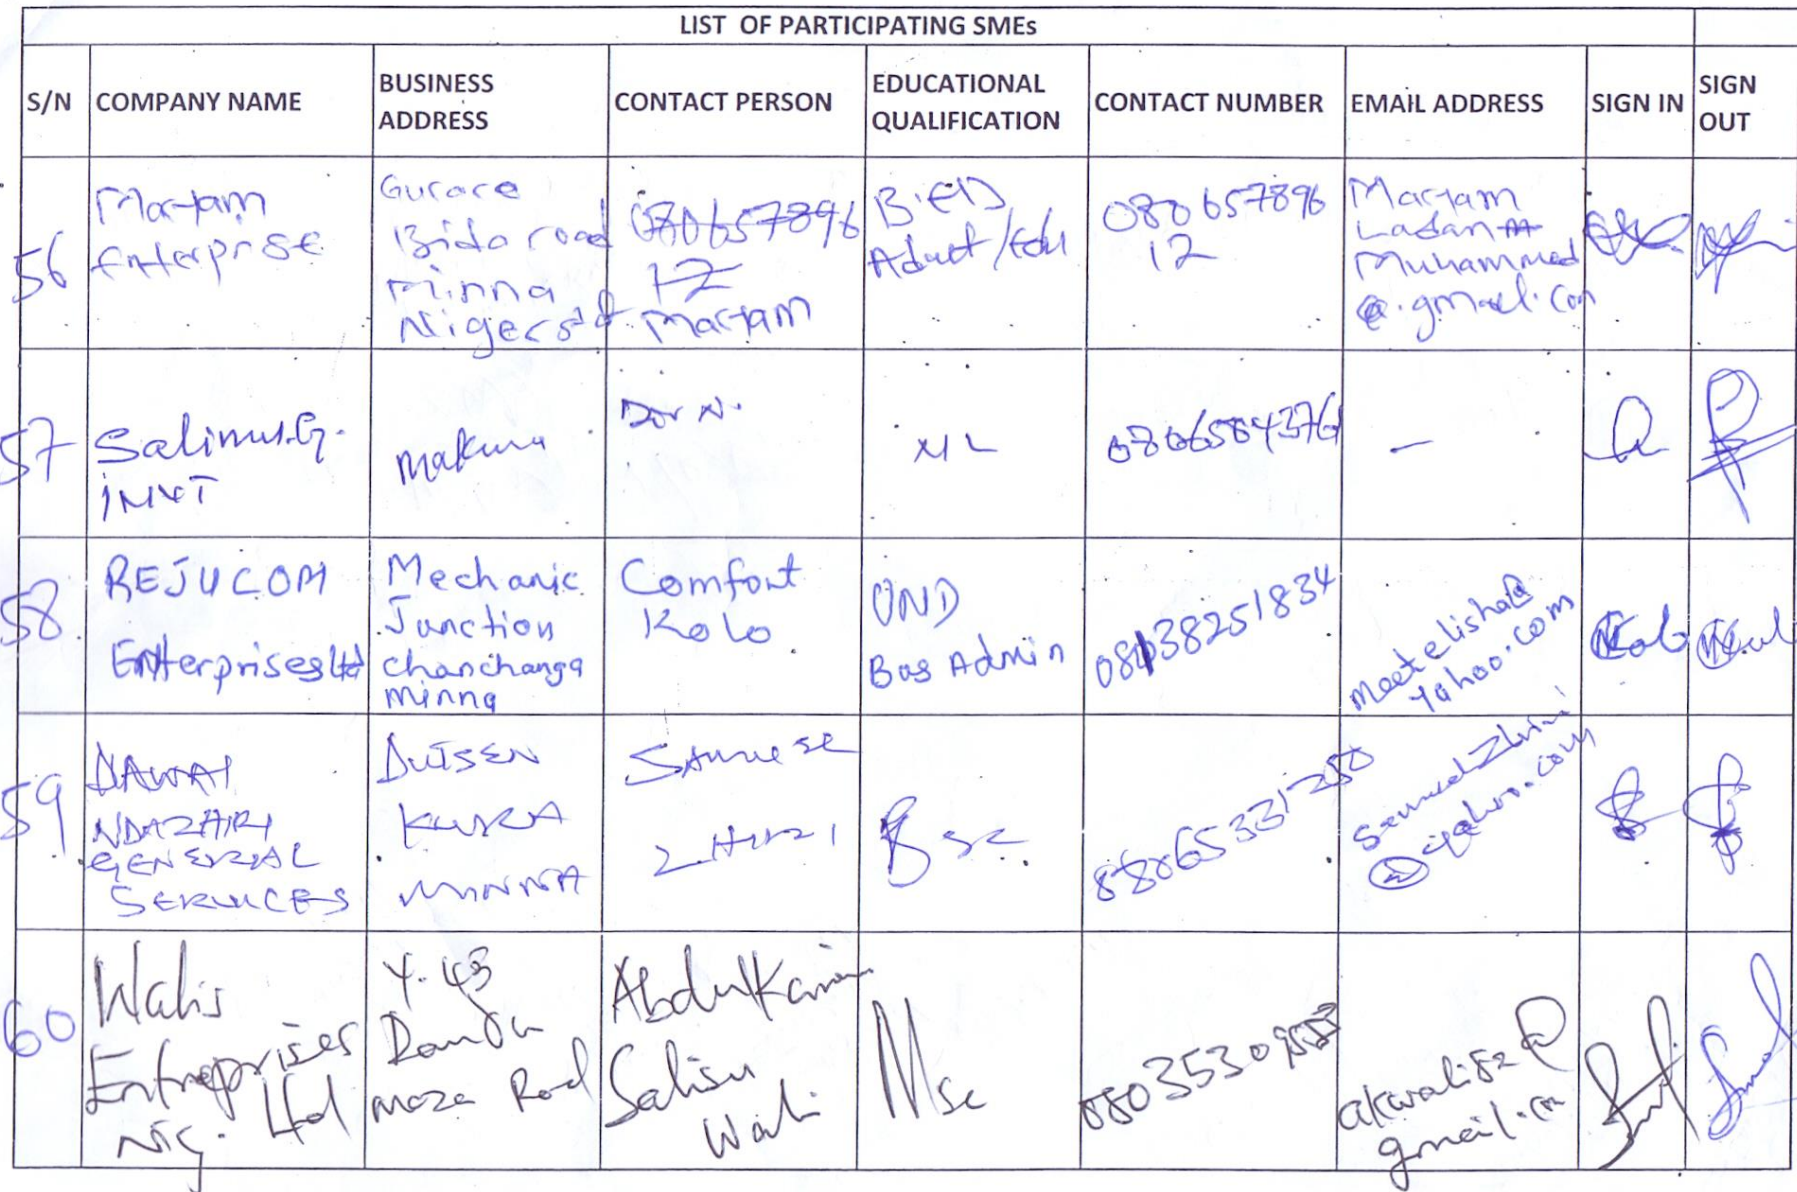 LIST OF PARTICIPATING SMEs
S/N
COMPANY NAME
BUSINESS
ADDRESS
CONTACT PERSON
EDUCATIONAL
QUALIFICATION
CONTACT NUMBER
EMAIL ADDRESS
SIGN IN
SIGN
OUT
56
Maryam
Enterprse
Gurara
Bida road
Minna
Niger
080657896
12
Maryam
B.ED
Aduct/Edu
080657896
12
Maryam
Ladan
Muhammed
@.gmael.com
57
INVT
makun
08065843761
—
58
REJUCOM
Enterprises Ltd
Mechanic
Junction
chanchanga
minna
Comfort
Kolo
OND
Bus Admin
08138251834
meetelisha@
yahoo.com
59
NDAZHIRI
GENERAL
SERVICES
DUTSEN
KURA
MINNA
Bsc
60
Walis
Enterprises
Nig. Ltd
Road
AbdulKarim
Salisu
Wali
Msc
akwali82@
gmail.com